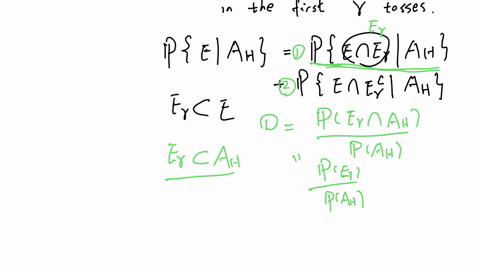 in the first r tosses.
Er
P{E|A_H} = ① P{E∩Er|A_H}
+ ② P{E∩Er^c|A_H}
Er ⊂ E
① = P(Er∩A_H) / P(A_H)
Er ⊂ A_H
" P(Er) / P(A_H)